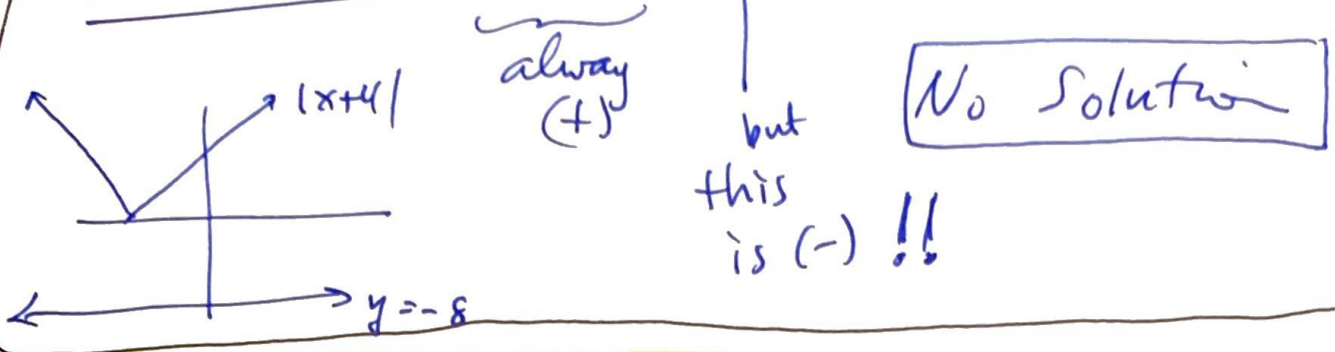 alway
(+)
|x+4|
but
this
is (-) !!
No Solution
y=-8